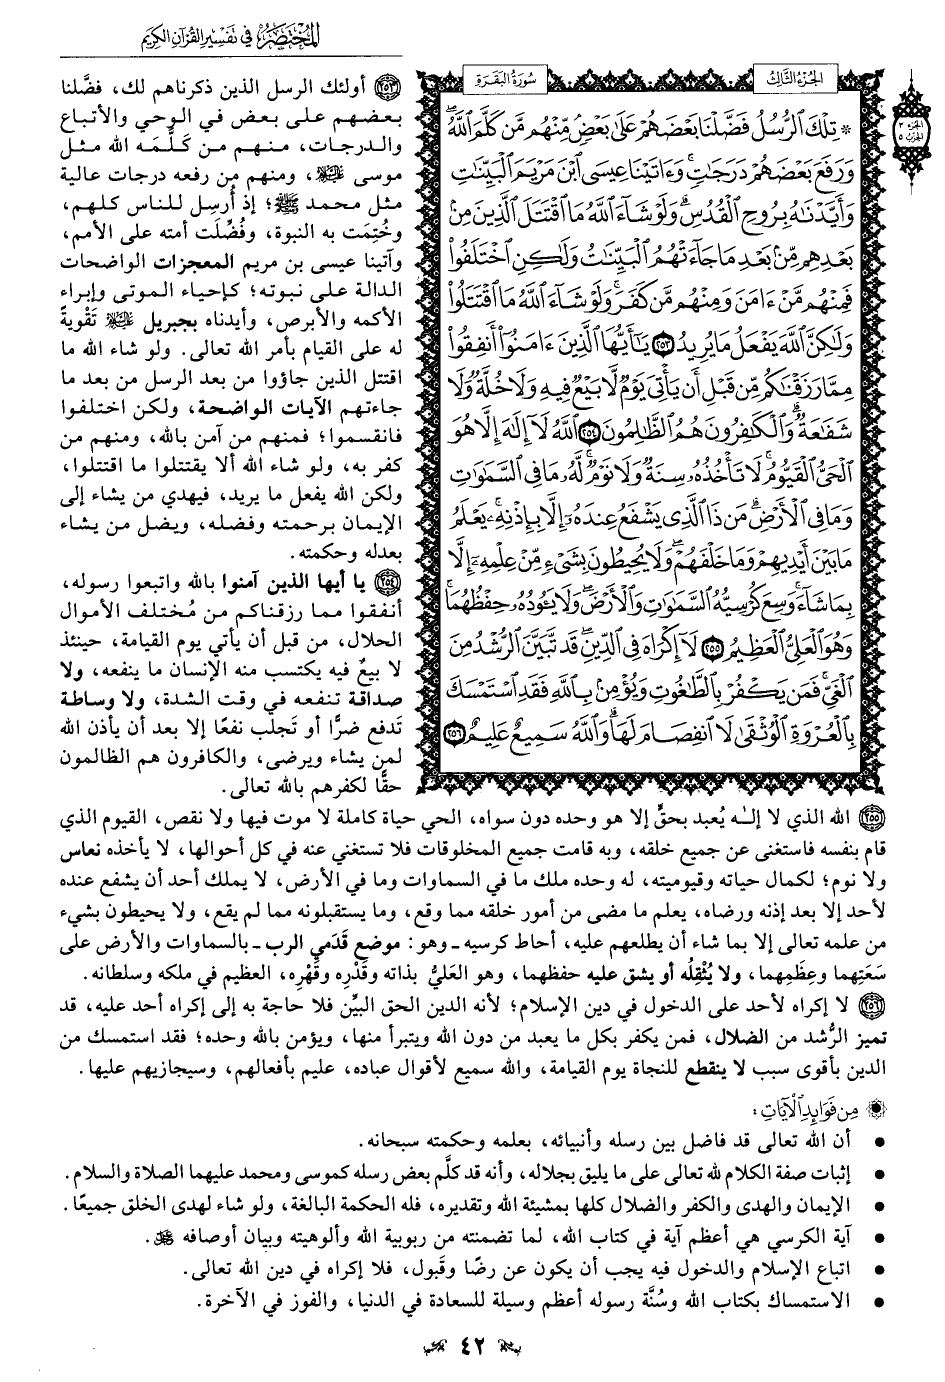 المُخْتَصَرُ فِي تَفْسِيرِ القُرْآنِ الكَرِيمِ
الجُزْءُ الثَّالِثُ
سُورَةُ البَقَرَةِ
* تِلْكَ ٱلرُّسُلُ فَضَّلْنَا بَعْضَهُمْ عَلَىٰ بَعْضٍۘ مِّنْهُم مَّن كَلَّمَ ٱللَّهُۖ
وَرَفَعَ بَعْضَهُمْ دَرَجَٰتٍۚ وَءَاتَيْنَا عِيسَى ٱبْنَ مَرْيَمَ ٱلْبَيِّنَٰتِ
وَأَيَّدْنَٰهُ بِرُوحِ ٱلْقُدُسِۗ وَلَوْ شَآءَ ٱللَّهُ مَا ٱقْتَتَلَ ٱلَّذِينَ مِنۢ
بَعْدِهِم مِّنۢ بَعْدِ مَا جَآءَتْهُمُ ٱلْبَيِّنَٰتُ وَلَٰكِنِ ٱخْتَلَفُواْ
فَمِنْهُم مَّنْ ءَامَنَ وَمِنْهُم مَّن كَفَرَۚ وَلَوْ شَآءَ ٱللَّهُ مَا ٱقْتَتَلُواْ
وَلَٰكِنَّ ٱللَّهَ يَفْعَلُ مَا يُرِيدُ ٢٥٣ يَٰٓأَيُّهَا ٱلَّذِينَ ءَامَنُوٓاْ أَنفِقُواْ
مِمَّا رَزَقْنَٰكُم مِّن قَبْلِ أَن يَأْتِيَ يَوْمٌ لَّا بَيْعٌ فِيهِ وَلَا خُلَّةٌ وَلَا
شَفَٰعَةٌۗ وَٱلْكَٰفِرُونَ هُمُ ٱلظَّٰلِمُونَ ٢٥٤ ٱللَّهُ لَآ إِلَٰهَ إِلَّا هُوَ
ٱلْحَيُّ ٱلْقَيُّومُۚ لَا تَأْخُذُهُۥ سِنَةٌ وَلَا نَوْمٌۚ لَّهُۥ مَا فِي ٱلسَّمَٰوَٰتِ
وَمَا فِي ٱلْأَرْضِۗ مَن ذَا ٱلَّذِي يَشْفَعُ عِندَهُۥٓ إِلَّا بِإِذْنِهِۦۚ يَعْلَمُ
مَا بَيْنَ أَيْدِيهِمْ وَمَا خَلْفَهُمْۖ وَلَا يُحِيطُونَ بِشَيْءٍ مِّنْ عِلْمِهِۦٓ إِلَّا
بِمَا شَآءَۚ وَسِعَ كُرْسِيُّهُ ٱلسَّمَٰوَٰتِ وَٱلْأَرْضَۖ وَلَا يَـُٔودُهُۥ حِفْظُهُمَاۚ
وَهُوَ ٱلْعَلِيُّ ٱلْعَظِيمُ ٢٥٥ لَآ إِكْرَاهَ فِي ٱلدِّينِۖ قَد تَّبَيَّنَ ٱلرُّشْدُ مِنَ
ٱلْغَيِّۚ فَمَن يَكْفُرْ بِٱلطَّٰغُوتِ وَيُؤْمِنۢ بِٱللَّهِ فَقَدِ ٱسْتَمْسَكَ
بِٱلْعُرْوَةِ ٱلْوُثْقَىٰ لَا ٱنفِصَامَ لَهَاۗ وَٱللَّهُ سَمِيعٌ عَلِيمٌ ٢٥٦
٢٥٣ أولئك الرسل الذين ذكرناهم لك، فضَّلنا
بعضهم على بعض في الوحي والأتباع
والدرجات، منهم من كَلَّمَه الله مثل
موسى عليه السلام، ومنهم من رفعه درجات عالية
مثل محمد ﷺ؛ إذ أُرسِل للناس كلهم،
وخُتِمَت به النبوة، وفُضِّلَت أمته على الأمم،
وآتينا عيسى بن مريم المعجزات الواضحات
الدالة على نبوته؛ كإحياء الموتى وإبراء
الأكمه والأبرص، وأيدناه بجبريل عليه السلام تَقْويةً
له على القيام بأمر الله تعالى. ولو شاء الله ما
اقتتل الذين جاؤوا من بعد الرسل من بعد ما
جاءتهم الآيات الواضحة، ولكن اختلفوا
فانقسموا؛ فمنهم من آمن بالله، ومنهم من
كفر به، ولو شاء الله ألا يقتتلوا ما اقتتلوا،
ولكن الله يفعل ما يريد، فيهدي من يشاء إلى
الإيمان برحمته وفضله، ويضل من يشاء
بعدله وحكمته.
٢٥٤ يا أيها الذين آمنوا بالله واتبعوا رسوله،
أنفقوا مما رزقناكم من مُختلف الأموال
الحلال، من قبل أن يأتي يوم القيامة، حينئذ
لا بيعٌ فيه يكتسب منه الإنسان ما ينفعه، ولا
صداقة تنفعه في وقت الشدة، ولا وساطة
تَدفع ضرًّا أو تَجلب نفعًا إلا بعد أن يأذن الله
لمن يشاء ويرضى، والكافرون هم الظالمون
حقًّا لكفرهم بالله تعالى.
٢٥٥ الله الذي لا إلـٰه يُعبد بحقٍّ إلا هو وحده دون سواه، الحي حياة كاملة لا موت فيها ولا نقص، القيوم الذي
قام بنفسه فاستغنى عن جميع خلقه، وبه قامت جميع المخلوقات فلا تستغني عنه في كل أحوالها، لا يأخذه نعاس
ولا نوم؛ لكمال حياته وقيوميته، له وحده ملك ما في السماوات وما في الأرض، لا يملك أحد أن يشفع عنده
لأحد إلا بعد إذنه ورضاه، يعلم ما مضى من أمور خلقه مما وقع، وما يستقبلونه مما لم يقع، ولا يحيطون بشيء
من علمه تعالى إلا بما شاء أن يطلعهم عليه، أحاط كرسيه ـ وهو: موضع قَدَمي الرب ـ بالسماوات والأرض على
سَعَتِهما وعِظَمِهما، ولا يُثْقِلُه أو يشق عليه حفظهما، وهو العَليُّ بذاته وقَدْرِه وقَهْرِه، العظيم في ملكه وسلطانه.
٢٥٦ لا إكراه لأحد على الدخول في دين الإسلام؛ لأنه الدين الحق البيِّن فلا حاجة به إلى إكراه أحد عليه، قد
تميز الرُّشد من الضلال، فمن يكفر بكل ما يعبد من دون الله ويتبرأ منها، ويؤمن بالله وحده؛ فقد استمسك من
الدين بأقوى سبب لا ينقطع للنجاة يوم القيامة، والله سميع لأقوال عباده، عليم بأفعالهم، وسيجازيهم عليها.
مِن فَوَائِدِ الآيَاتِ:
• أن الله تعالى قد فاضل بين رسله وأنبيائه، بعلمه وحكمته سبحانه.
• إثبات صفة الكلام لله تعالى على ما يليق بجلاله، وأنه قد كلَّم بعض رسله كموسى ومحمد عليهما الصلاة والسلام.
• الإيمان والهدى والكفر والضلال كلها بمشيئة الله وتقديره، فله الحكمة البالغة، ولو شاء لهدى الخلق جميعًا.
• آية الكرسي هي أعظم آية في كتاب الله، لما تضمنته من ربوبية الله وألوهيته وبيان أوصافه ﷻ.
• اتباع الإسلام والدخول فيه يجب أن يكون عن رضًا وقَبول، فلا إكراه في دين الله تعالى.
• الاستمساك بكتاب الله وسُنَّة رسوله أعظم وسيلة للسعادة في الدنيا، والفوز في الآخرة.
٤٢